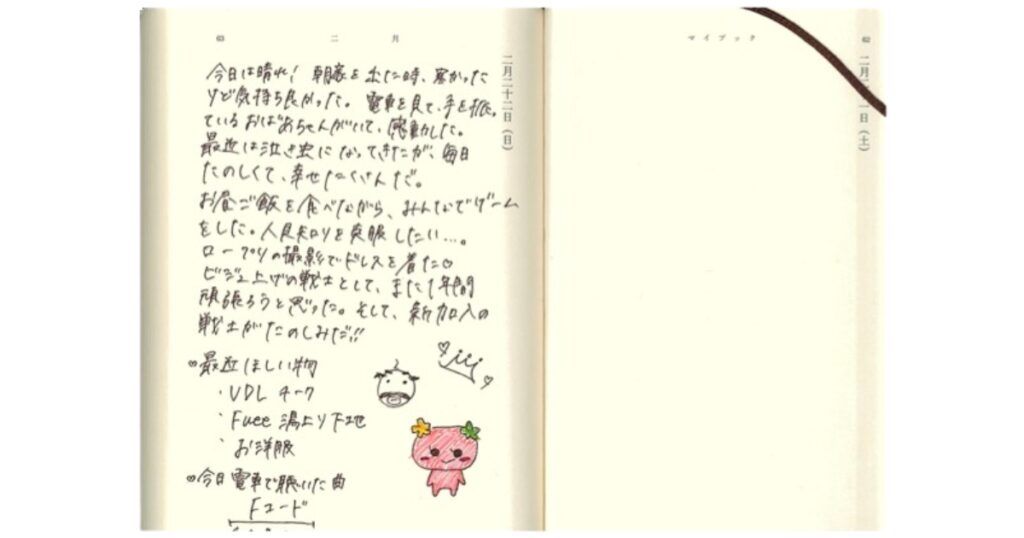 63 二月
二月二十二日(日)
今日は晴れ! 朝家を出た時、寒かった
けど気持ち良かった。電車を見て、手を振っ
ているおばあちゃんがいて、感動した。
最近は泣き虫になってきたが、毎日
たのしくて、幸せたくさんだ。
お昼ご飯を食べながら、みんなでゲーム
をした。人見知りを克服したい…。
ロープリの撮影でドレスを着た♡
ビジュ上げの戦士として、また1年間
頑張ろうと思った。そして、新加入の
戦士がたのしみだ!!
♡最近ほしい物
・VDL チーク
・Fuee 湯上り下地
・お洋服
♡今日電車で聴いた曲
Fコード
マイブック 62
二月 一日(土)